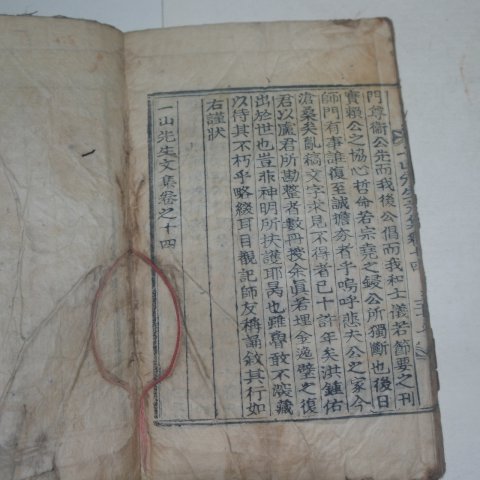 門尊衛公先而我後公倡而我和士儀若節要之刊
實賴公之協心哲命若宗堯之錢公所獨斷也後日
師門有事誰復至誠擔夯者乎嗚呼悲夫公之家今
滄桑矣亂稿文字求見不得者已十許年矣洪鍾佑
君以盧君所勘整者數冊授余眞若埋金逸璧之復
出於世也豈非神明所扶護耶昺也雖魯敢不湥藏
以待其不朽乎略綴耳目覩記師友稱誦敘其行如
右謹狀
一山先生文集卷之十四